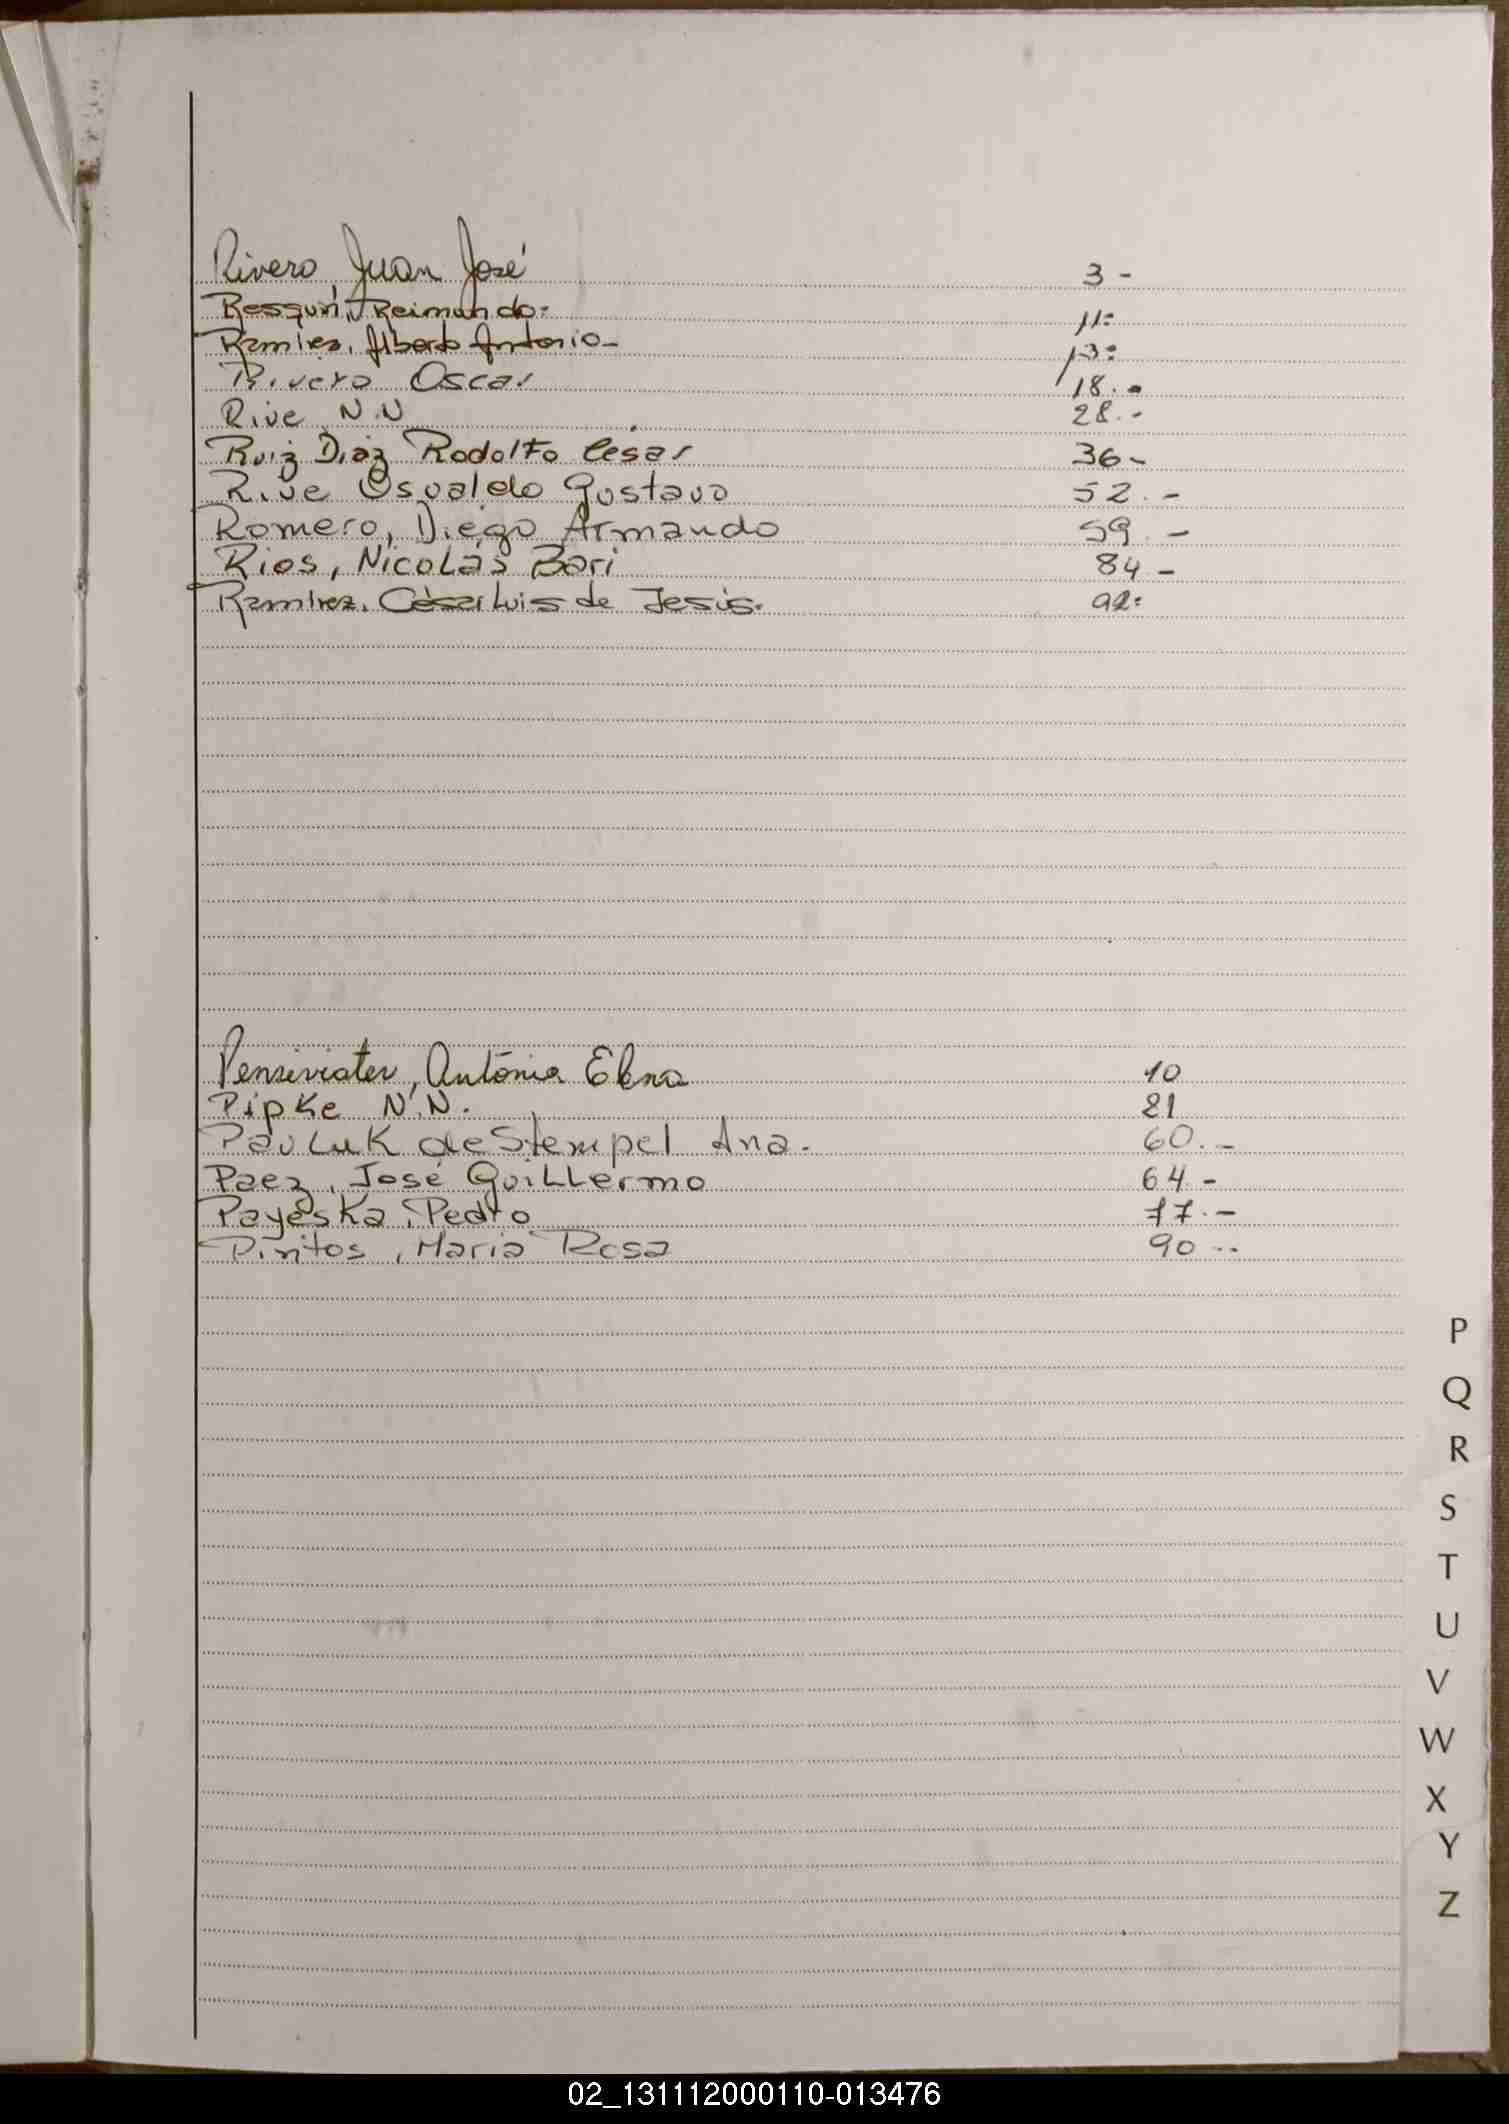 Rivero, Juan José 3 -
Resquín, Reimundo. 11:
Ramírez, Alberto Antonio - 13:
Rivero Oscar 18.-
Rive N.N 28.-
Ruiz Diaz Rodolfo César 36-
Rive Osvaldo Gustavo 52.-
Romero, Diego Armando 59.-
Rios, Nicolás Bari 84-
Ramírez, César Luis de Jesús. 92:
Antonia Elena 10
Pipke N.N. 21
Pavluk de Stempel Ana. 60.-
Paez, José Guillermo 64-
Payeska, Pedro 77.-
Pintos, Maria Rosa 90--
P
Q
R
S
T
U
V
W
X
Y
Z
02_131112000110-013476